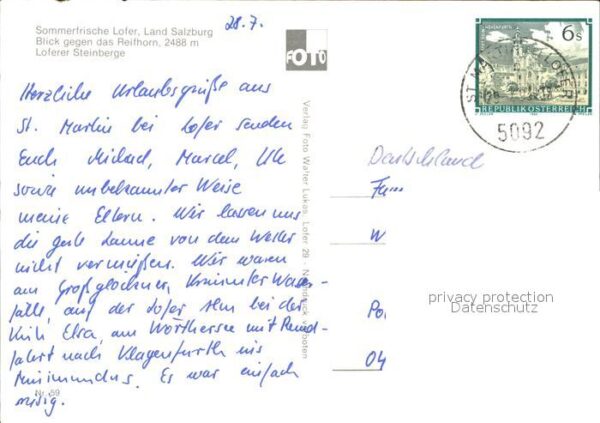 28.7.
Sommerfrische Lofer, Land Salzburg
Blick gegen das Reifhorn, 2488 m
Loferer Steinberge
FOTO
6 S
REPUBLIK ÖSTERREICH
5092
Herzliche Urlaubsgrüße aus
St. Martin bei Lofer senden
Euch Michael, Marcel, Ute
sowie unbekannter Weise
meine Eltern. Wir lassen uns
die gute Laune von dem Wetter
nicht vermießen. Wir waren
am Großglockner, Krimmler Wasser-
fälle, auf der Lofer Alm bei der
Kuh Elsa, am Wörthersee mit Rund-
fahrt nach Klagenfurth ins
Minimundus. Es war einfach
riesig.
Nr. 59
Verlag Foto Walter Lukas, Lofer 29 - Nachdruck verboten
Deutschland
Fam
W
Po
04
privacy protection
Datenschutz